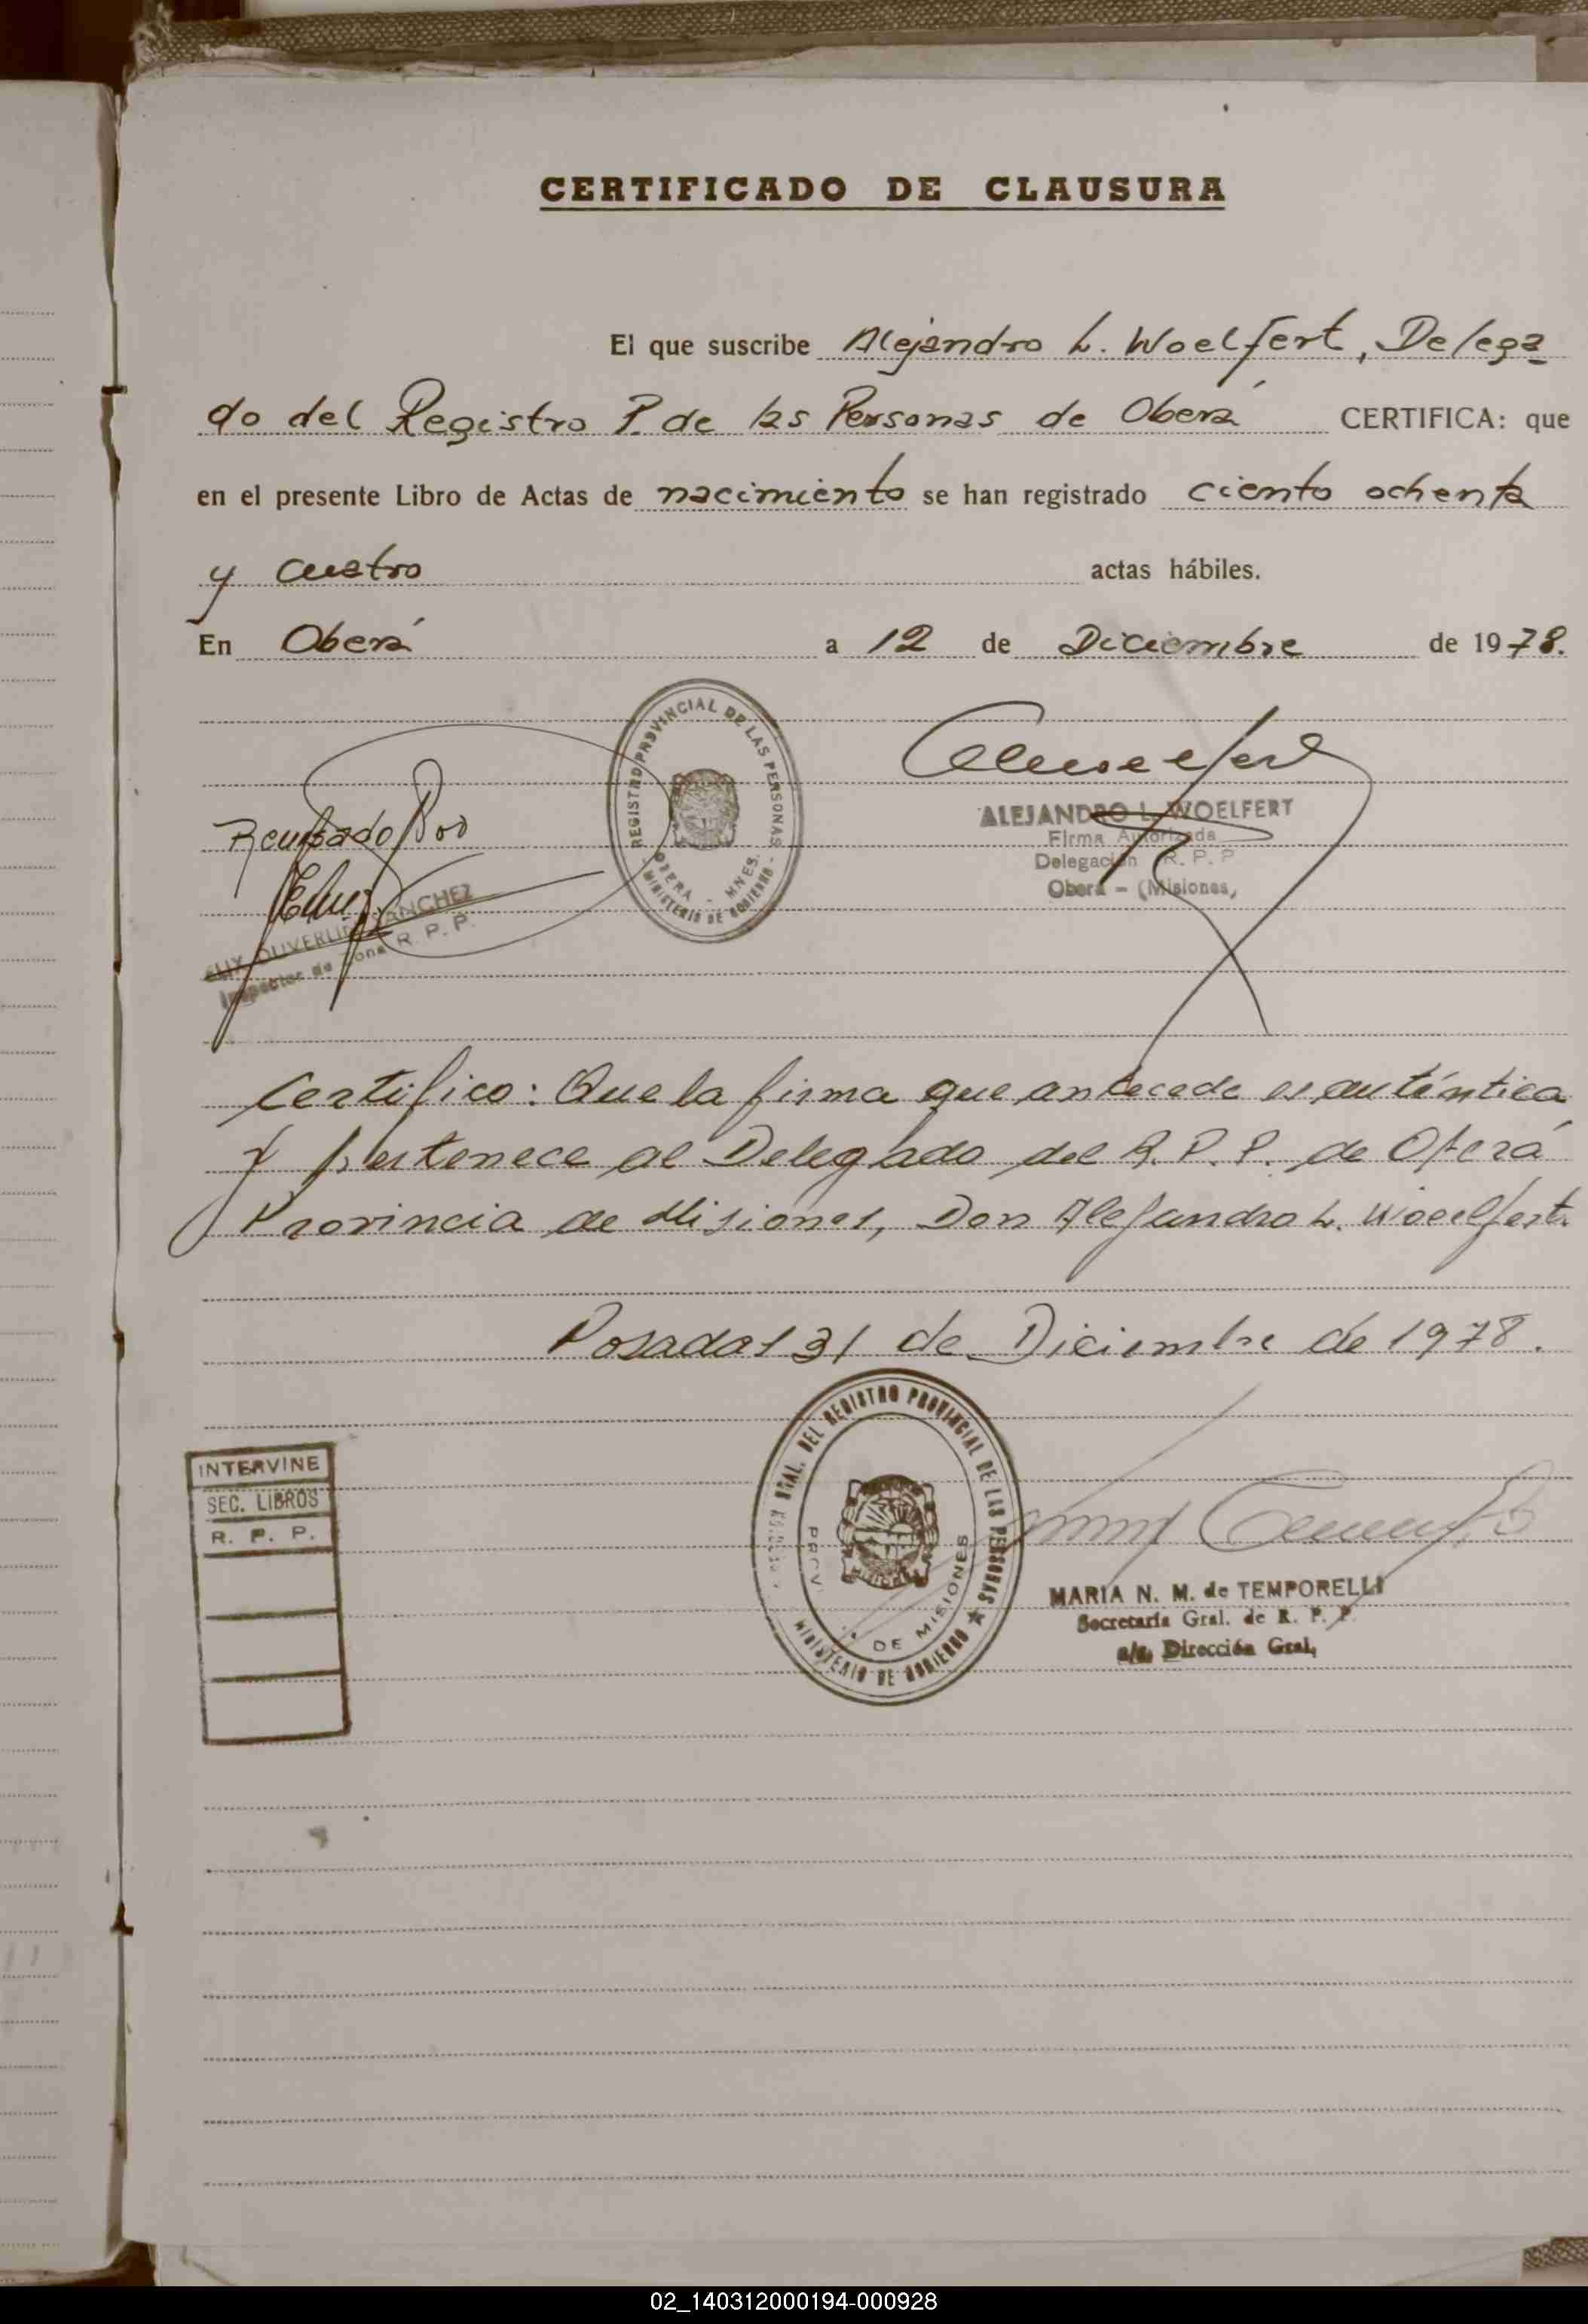 CERTIFICADO DE CLAUSURA
El que suscribe Alejandro L. Woelfert, Delega
do del Registro P. de las Personas de Oberá CERTIFICA: que
en el presente Libro de Actas de nacimiento se han registrado ciento ochenta
y cuatro actas hábiles.
En Oberá a 12 de Diciembre de 1978.
REGISTRO PROVINCIAL DE LAS PERSONAS
OBERA - MNES.
MINISTERIO DE GOBIERNO
ALEJANDRO L. WOELFERT
Firma Autorizada
Delegación R. P. P
Oberá - (Misiones)
SANCHEZ
Inspector de Zona R. P. P.
Certifico: Que la firma que antecede es auténtica
y pertenece al Delegado del R. P. P. de Oberá
Provincia de Misiones, Don Alejandro L. Woelfert.
Posadas 31 de Diciembre de 1978.
INTERVINE
SEC. LIBROS
R. P. P.
GRAL. DEL REGISTRO PROVINCIAL DE LAS PERSONAS
PROV. DE MISIONES
MINISTERIO DE GOBIERNO
MARIA N. M. de TEMPORELLI
Secretaría Gral. de R. P. P.
a/c. Dirección Gral,
02_140312000194-000928